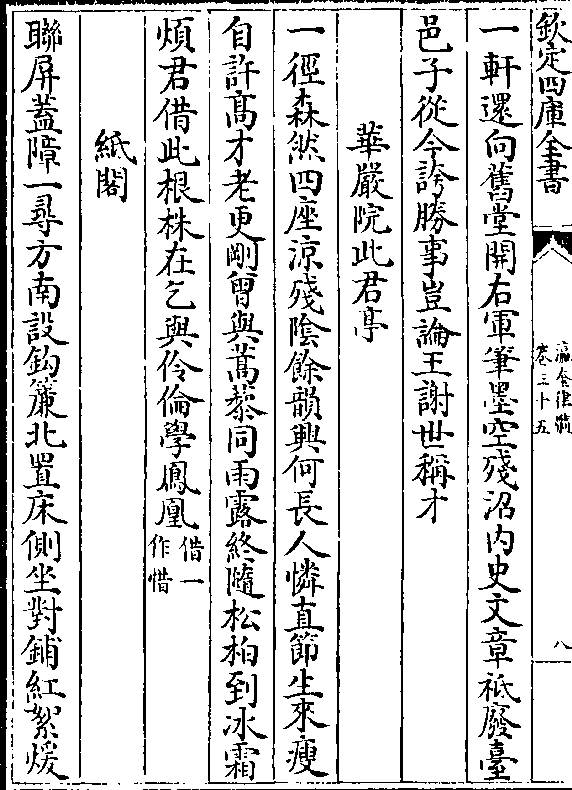 欽定四庫全書
瀛奎律髓
卷三十五
八
一軒還向舊堂開右軍筆墨空殘沼内史文章祗廢臺
邑子從今誇勝事豈論王謝世稱才
華嚴院此君亭
一徑森然四座涼殘陰餘韻興何長人憐直節生來瘦
自許髙才老更剛曾與蒿藜同雨露終隨松柏到冰霜
煩君借此根株在乞與伶倫學鳳凰借一作惜
紙閣
聯屏蓋障一尋方南設鈎簾北置床側坐對鋪紅絮煖